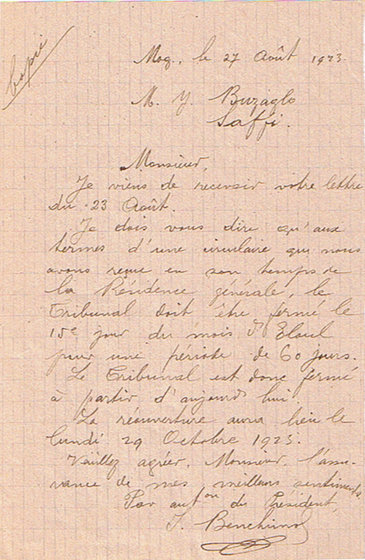 Copie
Mog, le 27 Août 1923.
M. Y. Buzaglo
Saffi.
Monsieur,
Je viens de recevoir votre lettre
du 23 Août.
Je dois vous dire qu'aux
termes d'une circulaire que nous
avons reçue en son temps de
la Résidence générale, le
Tribunal doit être fermé le
15e jour du mois d'Eloul
pour une période de 60 jours.
Le Tribunal est donc fermé
à partir d'aujourd'hui.
La réouverture aura lieu le
lundi 29 Octobre 1923.
Veuillez agréer, Monsieur, l'assu-
rance de mes meilleurs sentiments.
Par auton du Président,
J. Benchimol